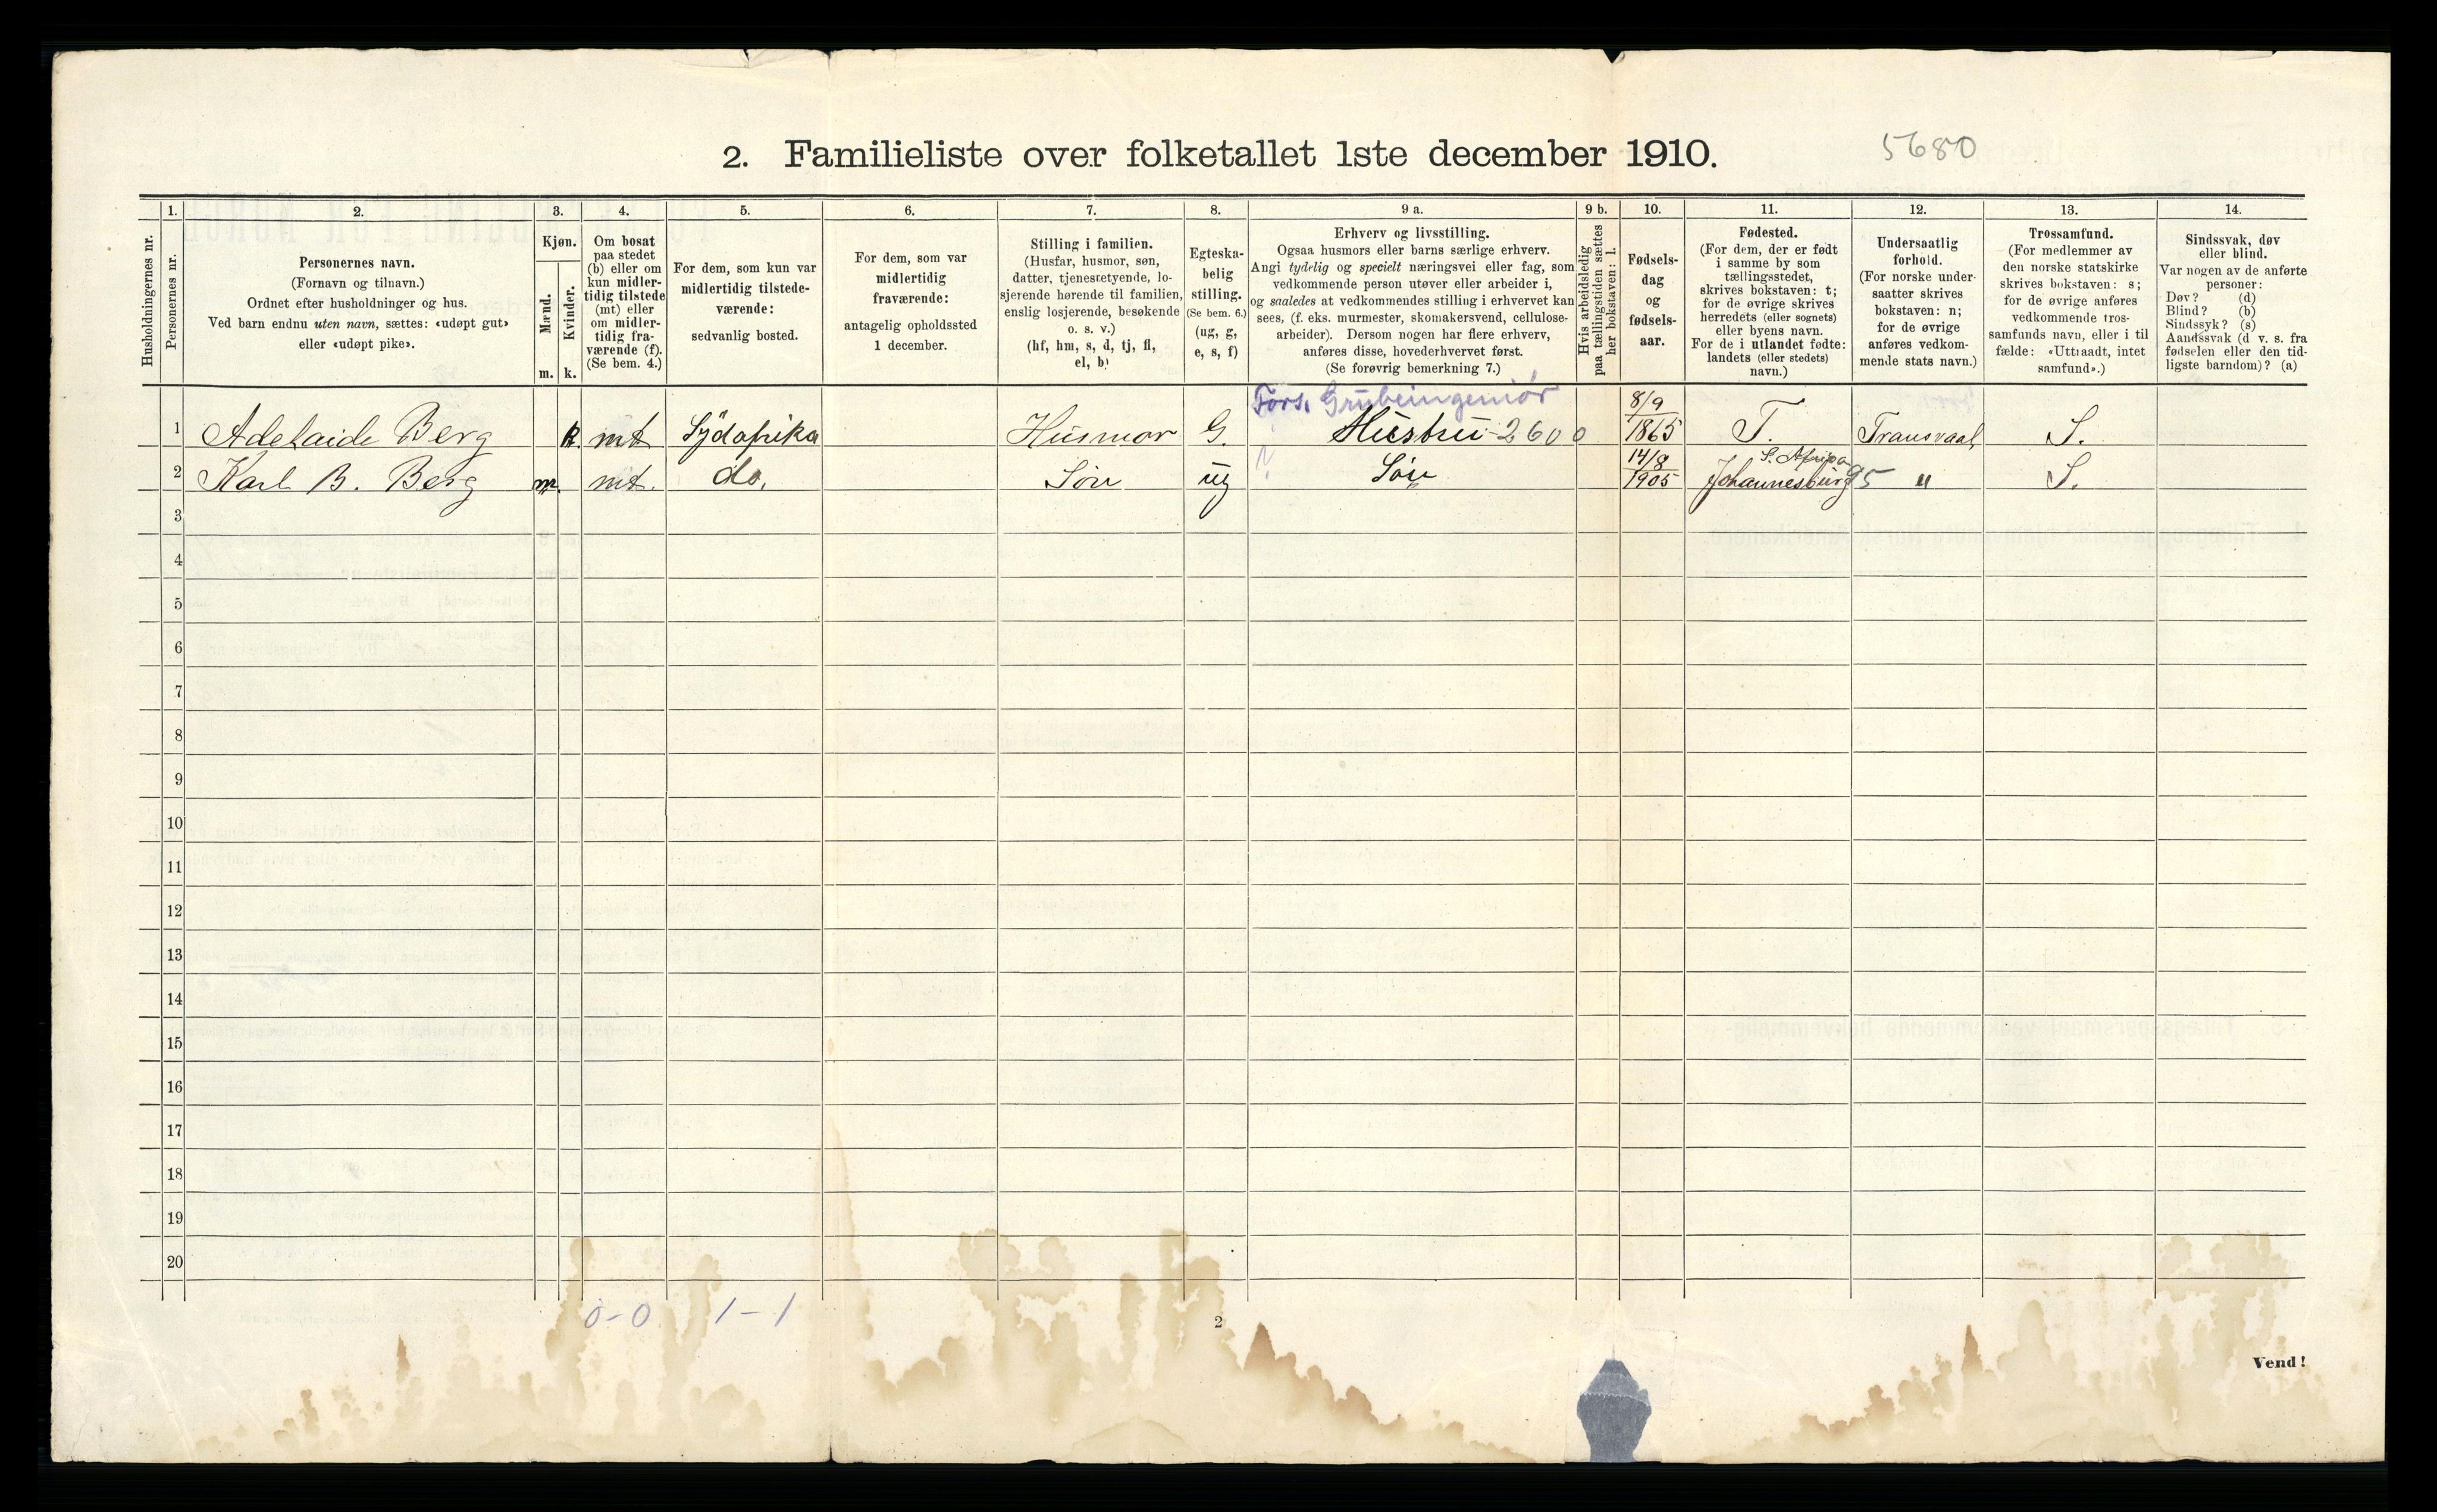 2. Familieliste over folketallet 1ste december 1910.
5680
Husholdningernes nr.
1.
Personernes nr.
2.
Personernes navn.
(Fornavn og tilnavn.)
Ordnet efter husholdninger og hus.
Ved barn endnu uten navn, sættes: «udøpt gut»
eller «udøpt pike».
3.
Kjøn.
Mænd.
m.
Kvinder.
k.
4.
Om bosat
paa stedet
(b) eller om
kun midler-
tidig tilstede
(mt) eller
om midler-
tidig fra-
værende (f).
(Se bem. 4.)
5.
For dem, som kun var
midlertidig tilstede-
værende:
sedvanlig bosted.
6.
For dem, som var
midlertidig
fraværende:
antagelig opholdssted
1 december.
7.
Stilling i familien.
(Husfar, husmor, søn,
datter, tjenestetyende, lo-
sjerende hørende til familien,
enslig losjerende, besøkende
o. s. v.)
(hf, hm, s, d, tj, fl,
el, b)
8.
Egteska-
belig
stilling.
(Se bem. 6.)
(ug, g,
e, s, f)
9 a.
Erhverv og livsstilling.
Ogsaa husmors eller barns særlige erhverv.
Angi tydelig og specielt næringsvei eller fag, som
vedkommende person utøver eller arbeider i,
og saaledes at vedkommendes stilling i erhvervet kan
sees, (f. eks. murmester, skomakersvend, cellulose-
arbeider). Dersom nogen har flere erhverv,
anføres disse, hovederhvervet først.
(Se forøvrig bemerkning 7.)
9 b.
Hvis arbeidsledig
paa tællingstiden sættes
her bokstaven: l.
10.
Fødsels-
dag
og
fødsels-
aar.
11.
Fødested.
(For dem, der er født
i samme by som
tællingsstedet,
skrives bokstaven: t;
for de øvrige skrives
herredets (eller sognets)
eller byens navn.
For de i utlandet fødte:
landets (eller stedets)
navn.)
12.
Undersaatlig
forhold.
(For norske under-
saatter skrives
bokstaven: n;
for de øvrige
anføres vedkom-
mende stats navn.)
13.
Trossamfund.
(For medlemmer av
den norske statskirke
skrives bokstaven: s;
for de øvrige anføres
vedkommende tros-
samfunds navn, eller i til
fælde: «Uttraadt, intet
samfund».)
14.
Sindssvak, døv
eller blind.
Var nogen av de anførte
personer:
Døv? (d)
Blind? (b)
Sindssyk? (s)
Aandssvak (d v. s. fra
fødselen eller den tid-
ligste barndom)? (a)
Fors. Grubeingeniør
1 Adelaide Berg k. mt Sydafrika Husmor G. Hustru 2600 8/9 1865 T. Transvaal S.
2 Karl B. Berg m. mt. do. Søn ug ? Søn 14/8 1905 S. Afrika Johannesburg 95 " S.
3
4
5
6
7
8
9
10
11
12
13
14
15
16
17
18
19
20
0-0 1-1
2
Vend!